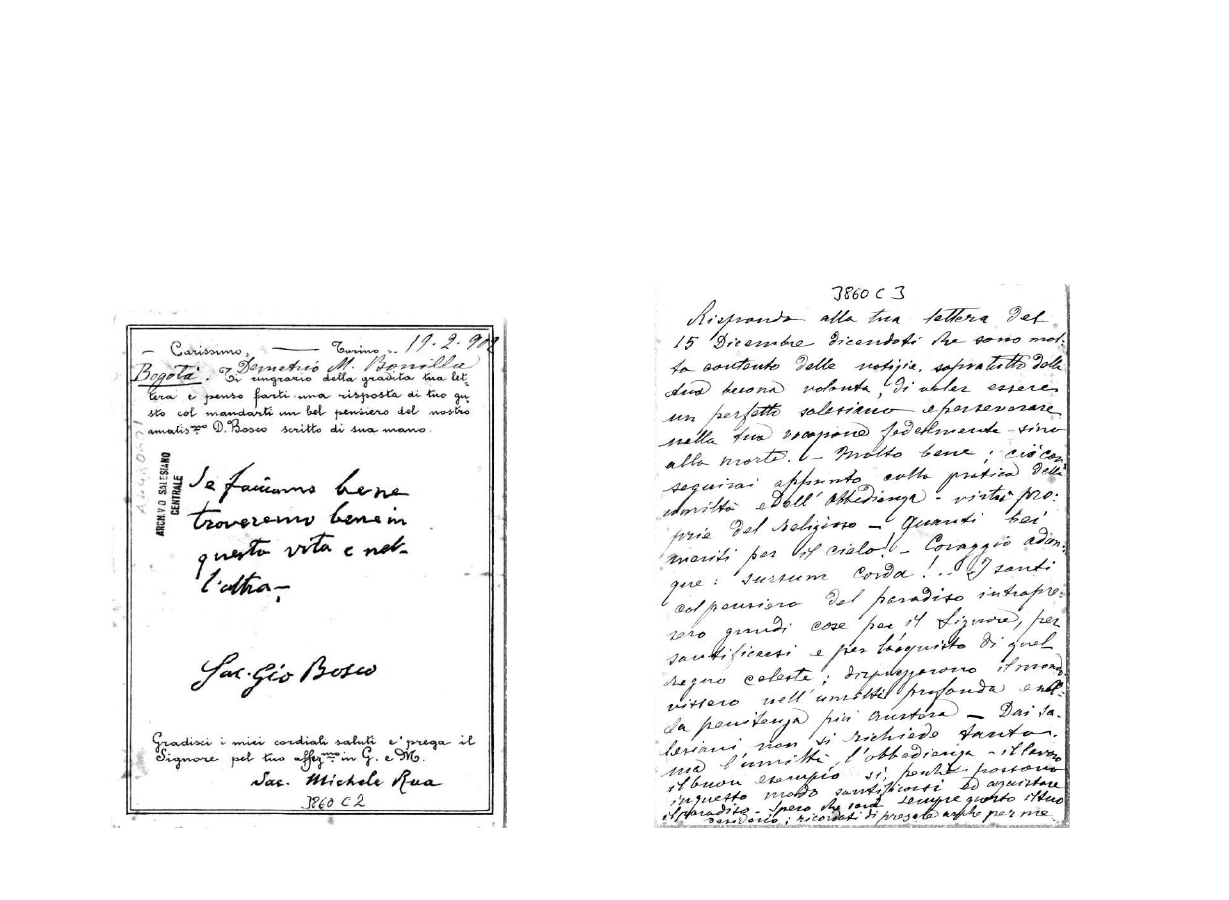 — Carissimo, — Torino .. 19-2-902
Demetrio M. Bonilla
Bogotà. Ti ringrazio della gradita tua let-
tera e penso farti una risposta di tuo gu-
sto col mandarti un bel pensiero del nostro
amatis.mo D. Bosco scritto di sua mano.
ARCHIVIO SALESIANO
CENTRALE
Se facciamo bene
troveremo bene in
questa vita e nel-
l'altra -
Sac. Gio Bosco
Gradisci i miei cordiali saluti e prega il
Signore pel tuo affez.mo in G. e M.
Sac. Michele Rua
3860 C 2
3860 C 3
Rispondo alla tua lettera del
15 Dicembre dicendoti che sono mol-
to contento delle notizie, sopratutto della
tua buona volontà, di voler essere
un perfetto salesiano e perseverare
nella tua vocazione fedelmente sino
alla morte. - Molto bene; ciò con
seguirai appunto colla pratica della
umiltà e dell'obbedienza - virtù pro:
prie del Religioso - Quanti bei
meriti per il cielo! - Coraggio adun:
que: sursum corda!.. I santi
col pensiero del paradiso intrapre:
sero grandi cose per il Signore, per
santificarsi e per l'acquisto di quel
regno celeste; disprezzarono il mondo
vissero nell'umiltà profonda e nel:
la penitenza più austera - Dai Sa-
lesiani non si richiede tanto.
ma l'umiltà, l'obbedienza - il lavoro
il buon esempio si, perché possono
in questo modo santificarsi ed acquistare
il paradiso - Spero che sarà sempre questo il tuo
desiderio; ricordati di pregare anche per me